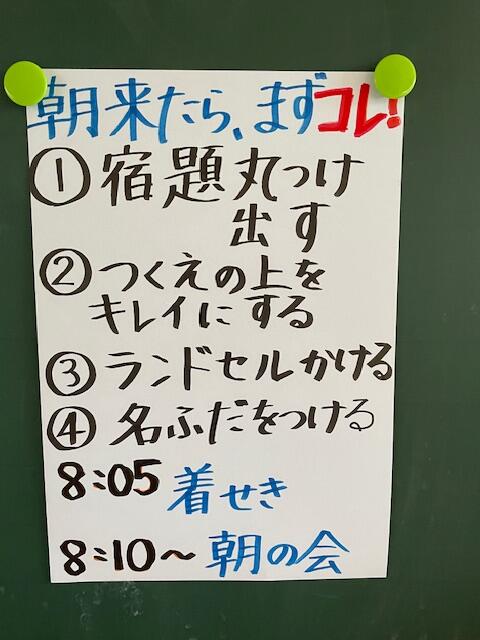 朝来たら、まずコレ!
① 宿題丸つけ
出す
② つくえの上を
キレイにする
③ ランドセルかける
④ 名ふだをつける
8:05 着せき
8:10〜 朝の会